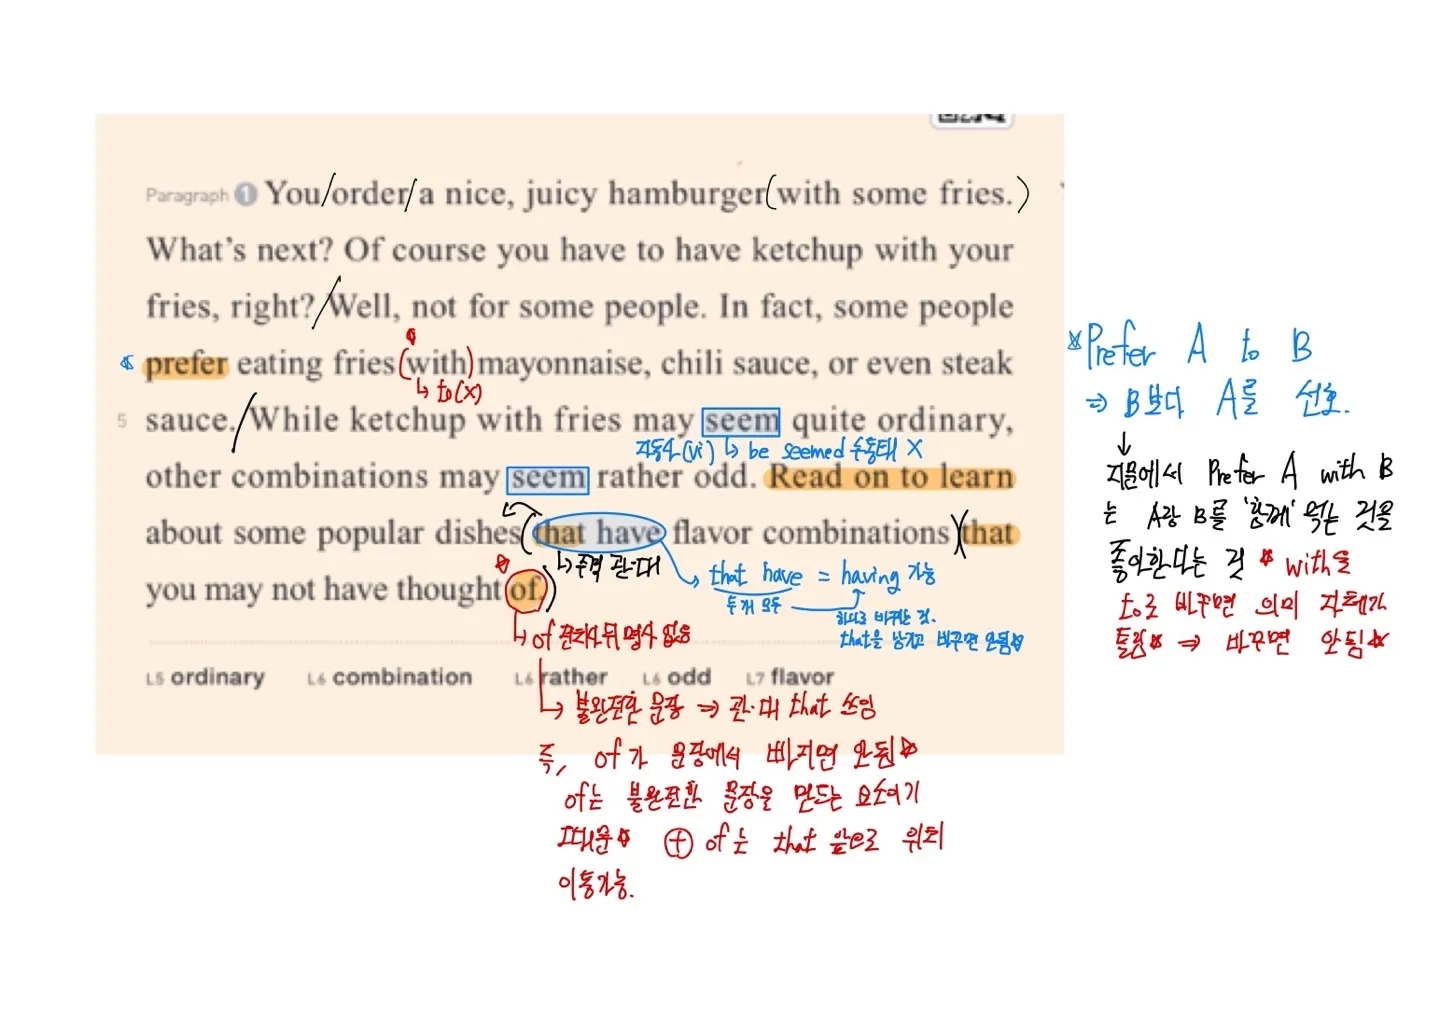 Paragraph 1 You/order/a nice, juicy hamburger(with some fries.)
What's next? Of course you have to have ketchup with your
fries, right?/Well, not for some people. In fact, some people
prefer eating fries (with) mayonnaise, chili sauce, or even steak
↳ to(X)
5 sauce./While ketchup with fries may seem quite ordinary,
자동사(vi) ↳ be seemed 수동태 X
other combinations may seem rather odd. Read on to learn
about some popular dishes(that have flavor combinations)(that
↳ 주격 관·대
that have = having 가능
두개 모두
하나로 바꾸는 것.
that을 남기고 바꾸면 안됨☆
you may not have thought of.)
↳ of 전치사 뒤 명사 없음
L5 ordinary L6 combination L6 rather L6 odd L7 flavor
↳ 불완전한 문장 ⇒ 관·대 that 쓰임
즉, of가 문장에서 빠지면 안됨☆
of는 불완전한 문장을 만드는 요소이기
때문☆ ⊕ of는 that 앞으로 위치
이동가능.
☆Prefer A to B
⇒ B보다 A를 선호.
↓
지문에서 Prefer A with B
는 A랑 B를 '함께' 먹는 것을
좋아한다는 것 ☆ with을
to로 바꾸면 의미 자체가
틀림☆ ⇒ 바꾸면 안됨☆